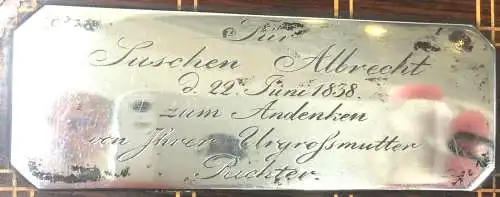 Für
Suschen Albrecht
d. 22. Juni 1838.
zum Andenken
von Ihrer Urgroſsmutter
Richter.